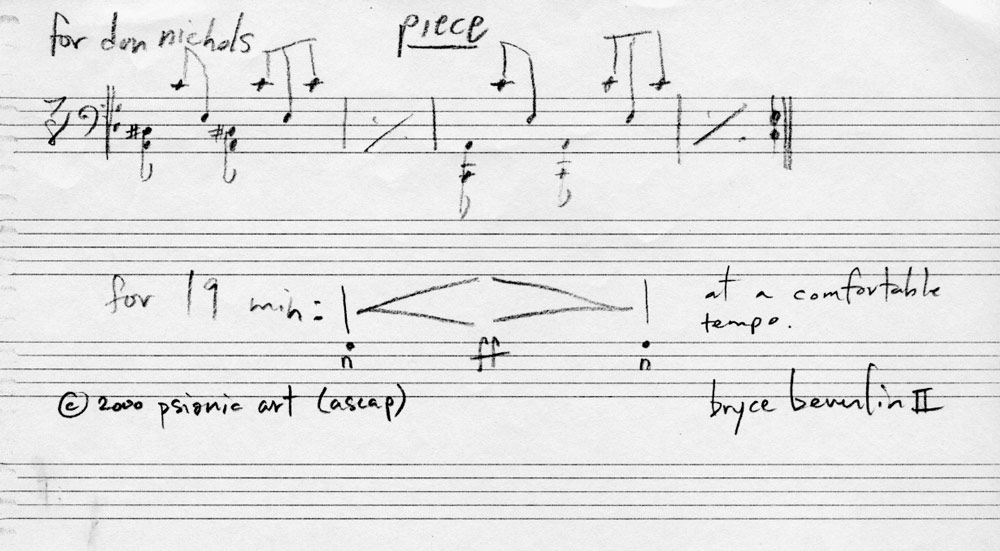 for don nichols
piece
7
8
for 19 min:
n ff n
at a comfortable
tempo.
© 2000 psionic art (ascap)
bryce beverlin II